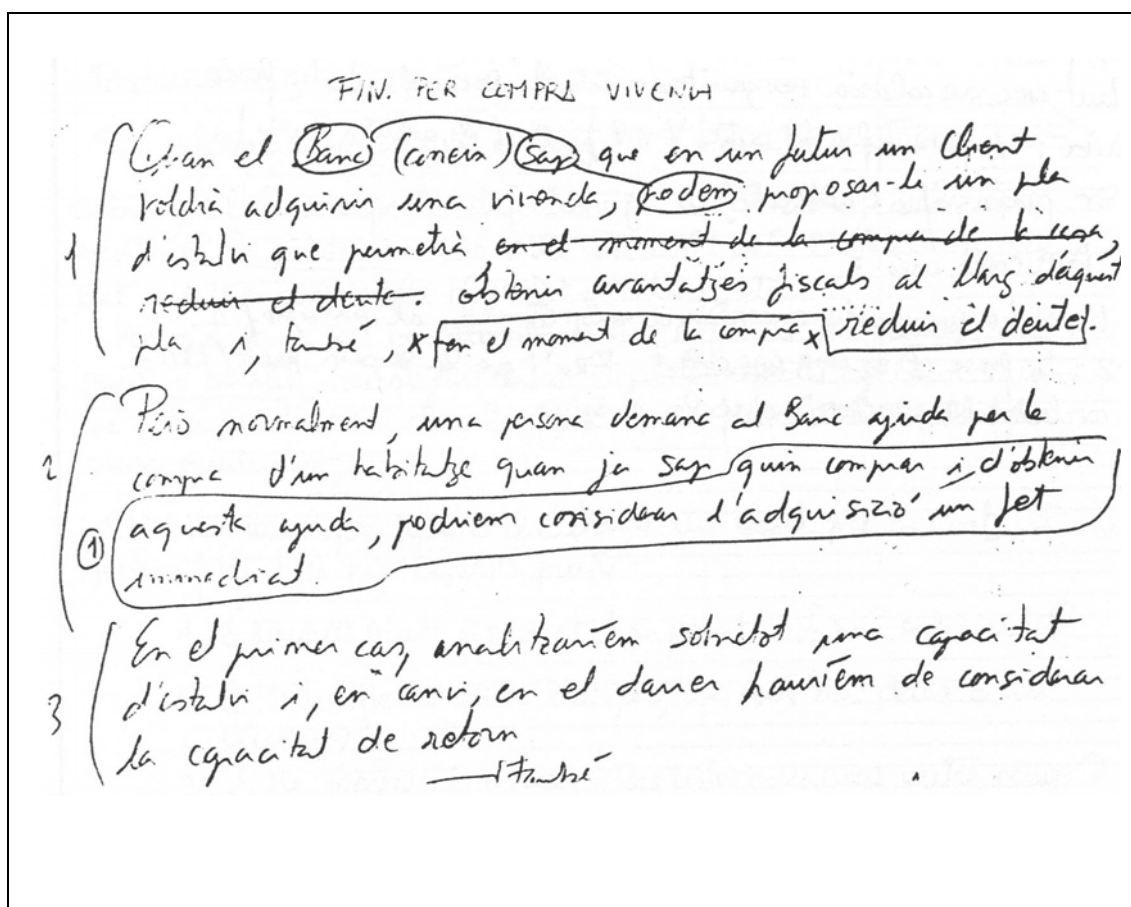 FIN. PER COMPRA VIVENDA
Quan el Banc (coneix) sap que en un futur un client
voldrà adquirir una vivenda, podem proposar-li un pla
1 d'estalvi que permetrà en el moment de la compra de la casa,
reduir el deute. obtenir avantatjes fiscals al llarg d'aquest
pla i, també, x en el moment de la compra x reduir el deute.
Però normalment, una persona demana al Banc ajuda per la
2 compra d'un habitatge quan ja sap quin comprar i d'obtenir
1 aquesta ajuda, podríem considerar l'adquisizió un fet
immediat.
En el primer cas, analitzaríem sobretot una capacitat
3 d'estalvi i, en canvi, en el darrer hauríem de considerar
la capacitat de retorn
també